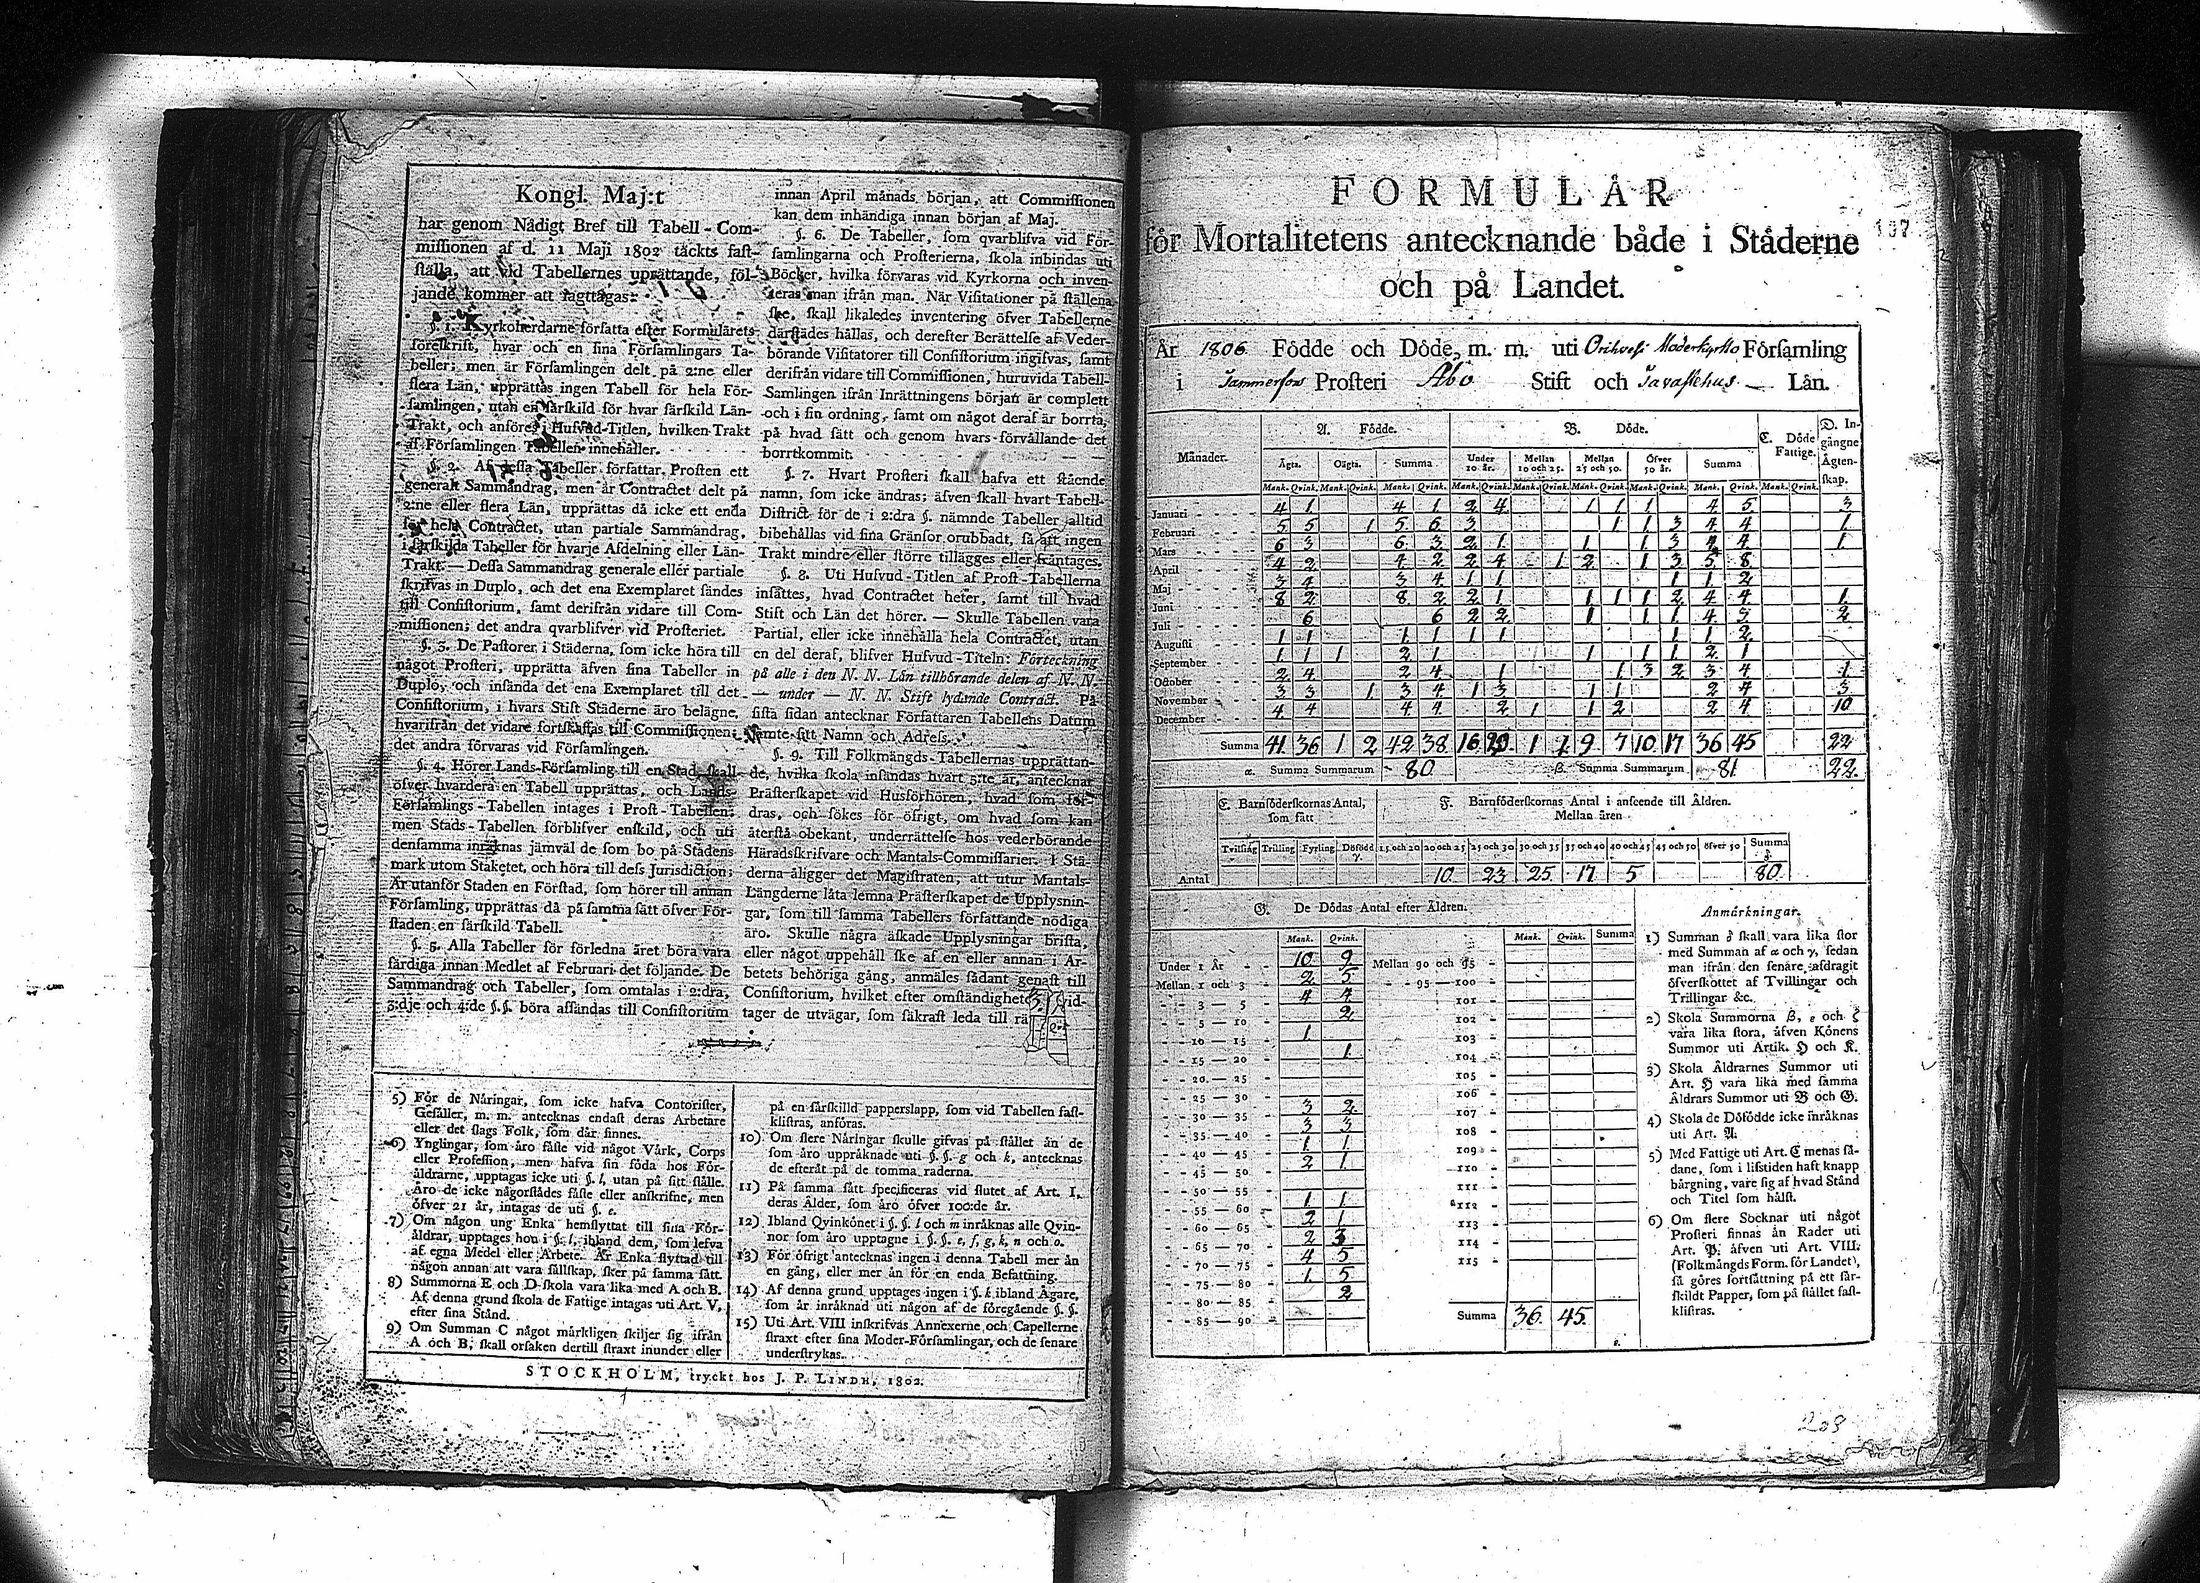 Kongl. Maj:t
har genom Nådigt Bref till Tabell-Com-
missionen af d. 11 Maji 1802 täckts fast-
ställa, att vid Tabellernes uprättande, föl-
jande kommer att iagttagas:
§. 1. Kyrkoherdarne författa efter Formulärets
föreskrift, hvar och en sina Församlingars Ta-
beller; men är Församlingen delt på 2:ne eller
flera Län, upprättas ingen Tabell för hela För-
samlingen, utan en särskild för hvar särskild Län-
Trakt, och anföres i Hufvud-Titlen, hvilken Trakt
af Församlingen Tabellen innehåller.
§. 2. Af dessa Tabeller författar Prosten ett
generalt Sammandrag, men är Contractet delt på
2:ne eller flera Län, upprättas då icke ett enda
för hela Contractet, utan partiale Sammandrag,
i särskilda Tabeller för hvarje Afdelning eller Län-
Trakt. — Dessa Sammandrag generale eller partiale
skrifvas in Duplo, och det ena Exemplaret sändes
till Consistorium, samt derifrån vidare till Com-
missionen; det andra qvarblifver vid Prosteriet.
§. 3. De Pastorer i Städerna, som icke höra till
något Prosteri, upprätta äfven sina Tabeller in
Duplo, och insända det ena Exemplaret till det
Consistorium, i hvars Stift Städerne äro belägne,
hvarifrån det vidare fortskaffas till Commissionen;
det andra förvaras vid Församlingen.
§. 4. Hörer Lands-Församling till en Stad, skall
öfver hvardera en Tabell upprättas, och Lands-
Församlings-Tabellen intages i Prost-Tabellen;
men Stads-Tabellen förblifver enskild, och uti
densamma inräknas jämväl de som bo på Stadens
mark utom Staketet, och höra till dess Jurisdiction;
Är utanför Staden en Förstad, som hörer till annan
Församling, upprättas då på samma sätt öfver För-
staden en särskild Tabell.
§. 5. Alla Tabeller för förledna året böra vara
färdiga innan Medlet af Februari det följande. De
Sammandrag och Tabeller, som omtalas i 2:dra,
3:dje och 4:de §.§. böra afsändas till Consistorium
innan April månads början, att Commissionen
kan dem inhändiga innan början af Maj.
§. 6. De Tabeller, som qvarblifva vid För-
samlingarna och Prosterierna, skola inbindas uti
Böcker, hvilka förvaras vid Kyrkorna och inven-
teras man ifrån man. När Visitationer på ställena
ske, skall likaledes inventering öfver Tabellerne
därstädes hållas, och derefter Berättelse af Veder-
börande Visitatorer till Consistorium ingifvas, samt
derifrån vidare till Commissionen, huruvida Tabell-
Samlingen ifrån Inrättningens början är complett
och i sin ordning, samt om något deraf är borrta,
på hvad sätt och genom hvars förvållande det
borrtkommit.
§. 7. Hvart Prosteri skall hafva ett stående
namn, som icke ändras; äfven skall hvart Tabell-
District för de i 2:dra §. nämnde Tabeller alltid
bibehållas vid sina Gränsor orubbadt, så att ingen
Trakt mindre eller större tillägges eller fråntages.
§. 8. Uti Hufvud-Titlen af Prost-Tabellerna
insättes, hvad Contractet heter, samt till hvad
Stift och Län det hörer. — Skulle Tabellen vara
Partial, eller icke innehålla hela Contractet, utan
en del deraf, blifver Hufvud-Titeln: Förteckning
på alle i den N. N. Län tillhörande delen af N. N.
— under — N. N. Stift lydande Contract. På
sista sidan antecknar Författaren Tabellens Datum
jemte sitt Namn och Adress.
§. 9. Till Folkmängds-Tabellernas upprättan-
de, hvilka skola insändas hvart 5:te år, antecknar
Prästerskapet vid Husförhören, hvad som for-
dras, och sökes för öfrigt, om hvad som kan
återstå obekant, underrättelse hos vederbörande
Häradsskrifvare och Mantals-Commissarier. I Stä-
derna åligger det Magistraten, att utur Mantals-
Längderne låta lemna Prästerskapet de Upplysnin-
gar, som till samma Tabellers författande nödiga
äro. Skulle några äskade Upplysningar brista,
eller något uppehåll ske af en eller annan i Ar-
betets behöriga gång, anmäles sådant genast till
Consistorium, hvilket efter omständigheterna vid-
tager de utvägar, som säkrast leda till rä
5) För de Näringar, som icke hafva Contorister,
Gesäller, m. m. antecknas endast deras Arbetare
eller det slags Folk, som där finnes.
6) Ynglingar, som äro fäste vid något Värk, Corps
eller Profession, men hafva sin föda hos För-
äldrarne, upptagas icke uti §. l, utan på sitt ställe.
Äro de icke någorstädes fäste eller anskrifne, men
öfver 21 år, intagas de uti §. e.
7) Om någon ung Enka hemflyttat till sina För-
äldrar, upptages hon i §. l, ibland dem, som lefva
af egna Medel eller Arbete. Är Enka flyttad till
någon annan att vara sällskap, sker på samma sätt.
8) Summorna E och D skola vara lika med A och B.
Af denna grund skola de Fattige intagas uti Art. V,
efter sina Stånd.
9) Om Summan C något märkligen skiljer sig ifrån
A och B, skall orsaken dertill straxt inunder eller
på en särskilld papperslapp, som vid Tabellen fast-
klistras, anföras.
10) Om flere Näringar skulle gifvas på stället än de
som äro uppräknade uti §. §. g och k, antecknas
de efteråt på de tomma raderna.
11) På samma sätt specificeras vid slutet af Art. I,
deras Ålder, som äro öfver 100:de år.
12) Ibland Qvinkönet i §. §. l och m inräknas alle Qvin-
nor som äro upptagne i §. §. e, f, g, k, n och o.
13) För öfrigt antecknas ingen i denna Tabell mer än
en gång, eller mer än för en enda Befattning.
14) Af denna grund upptages ingen i §. k ibland Ägare,
som är inräknad uti någon af de föregående §. §.
15) Uti Art. VIII inskrifvas Annexerne och Capellerne
straxt efter sina Moder-Församlingar, och de senare
understrykas.
STOCKHOLM, tryckt hos J. P. LINDH, 1802.
FORMULÄR
för Mortalitetens antecknande både i Städerne
och på Landet.
137
År 1806 Födde och Döde, m. m. uti Orihvesi Moderkyrko Församling
i Tammerfors Prosteri Åbo Stift och Tavastehus — Län.
Månader. A. Födde. B. Döde. C. Döde Fattige. D. Ingångne Ägtenskap.
Ägta. Oägta. Summa Under 10 år. Mellan 10 och 25. Mellan 25 och 50. Öfver 50 år. Summa
Mank. Qvink. Mank. Qvink. Mank. Qvink. Mank. Qvink. Mank. Qvink. Mank. Qvink. Mank. Qvink. Mank. Qvink. Mank. Qvink.
Januari 4 1 4 1 2 4 1 1 1 4 5 3
Februari 5 5 1 5 6 3 1 1 3 4 4 1
Mars 6 3 6 3 2 1 1 1 3 4 4 1
April 4 2 4 2 2 4 1 2 1 3 5 8
Maj 3 4 3 4 1 1 1 1 2
Juni 8 2 8 2 2 1 1 1 1 2 4 4 1
Juli 6 6 2 2 1 1 1 4 3 2
Augusti 1 1 1 1 1 1 1 1 2
September 1 1 1 2 1 1 1 1 2 1
October 2 4 2 4 1 1 3 2 3 4 1
November 3 3 1 3 4 1 3 1 1 2 4 3
December 4 4 4 4 2 1 1 2 2 4 10
Summa 41 36 1 2 42 38 16 20 1 1 9 7 10 17 36 45 22
α. Summa Summarum 80 β. Summa Summarum 81 22
E. Barnföderskornas Antal, som fått
F. Barnföderskornas Antal i anseende till Åldren.
Mellan åren
Tvilling Trilling Fyrling Dödfödd γ. 15 och 20 20 och 25 25 och 30 30 och 35 35 och 40 40 och 45 45 och 50 öfver 50 Summa δ
Antal 10 23 25 17 5 80
G. De Dödas Antal efter Åldren.
Mank. Qvink. Mank. Qvink. Summa
Under 1 År 10 9
Mellan 1 och 3 2 5
3 — 5 4 4
5 — 10 2
10 — 15 1
15 — 20 1
20 — 25
25 — 30
30 — 35 3 2
35 — 40 3 3
40 — 45 1 1
45 — 50 2 1
50 — 55
55 — 60 1 1
60 — 65 2 1
65 — 70 2 3
70 — 75 4 5
75 — 80 1 5
80 — 85 2
85 — 90
Mellan 90 och 95
95 — 100
101
102
103
104
105
106
107
108
109
110
111
112
113
114
115
Summa 36 45
Anmärkningar.
1) Summan δ skall vara lika stor
med Summan af α och γ, sedan
man ifrån den senare afdragit
öfverskottet af Tvillingar och
Trillingar &c.
2) Skola Summorna β, ε och ζ
vara lika stora, äfven Könens
Summor uti Artik. H och K.
3) Skola Åldrarnes Summor uti
Art. H vara lika med samma
Åldrars Summor uti B och G.
4) Skola de Dödfödde icke inräknas
uti Art. A.
5) Med Fattige uti Art. C menas så-
dane, som i lifstiden haft knapp
bärgning, vare sig af hvad Stånd
och Titel som hälst.
6) Om flere Socknar uti något
Prosteri finnas än Rader uti
Art. P. äfven uti Art. VIII.
(Folkmängds Form. för Landet),
så göres fortsättning på ett sär-
skildt Papper, som på stället fast-
klistras.
208